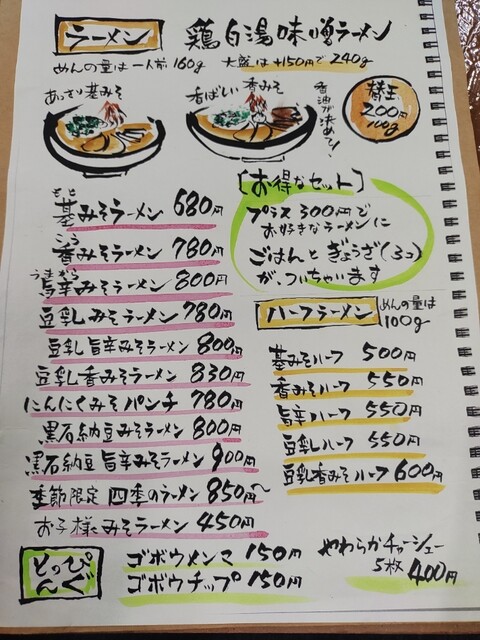 ラーメン
鶏白湯味噌ラーメン
めんの量は一人前160g 大盛は+150円で240g
あっさり基みそ
香ばしい香みそ
香油が決めて!
替玉
200円
100g
もと
基みそラーメン 680円
こう
香みそラーメン 780円
うまから
旨辛みそラーメン 800円
豆乳みそラーメン 780円
豆乳旨辛みそラーメン 800円
豆乳香みそラーメン 830円
にんにくみそパンチ 780円
黒石納豆みそラーメン 800円
黒石納豆旨辛みそラーメン 900円
季節限定 四季のラーメン 850円〜
お子様みそラーメン 450円
[お得なセット]
プラス300円で
お好きなラーメンに
ごはんとぎょうざ(3コ)
が、ついちゃいます
ハーフラーメン
めんの量は
100g
基みそハーフ 500円
香みそハーフ 550円
旨辛ハーフ 550円
豆乳ハーフ 550円
豆乳香みそハーフ 600円
とっぴんぐ
ゴボウメンマ 150円
ゴボウチップ 150円
やわらかチャーシュー
5枚 400円